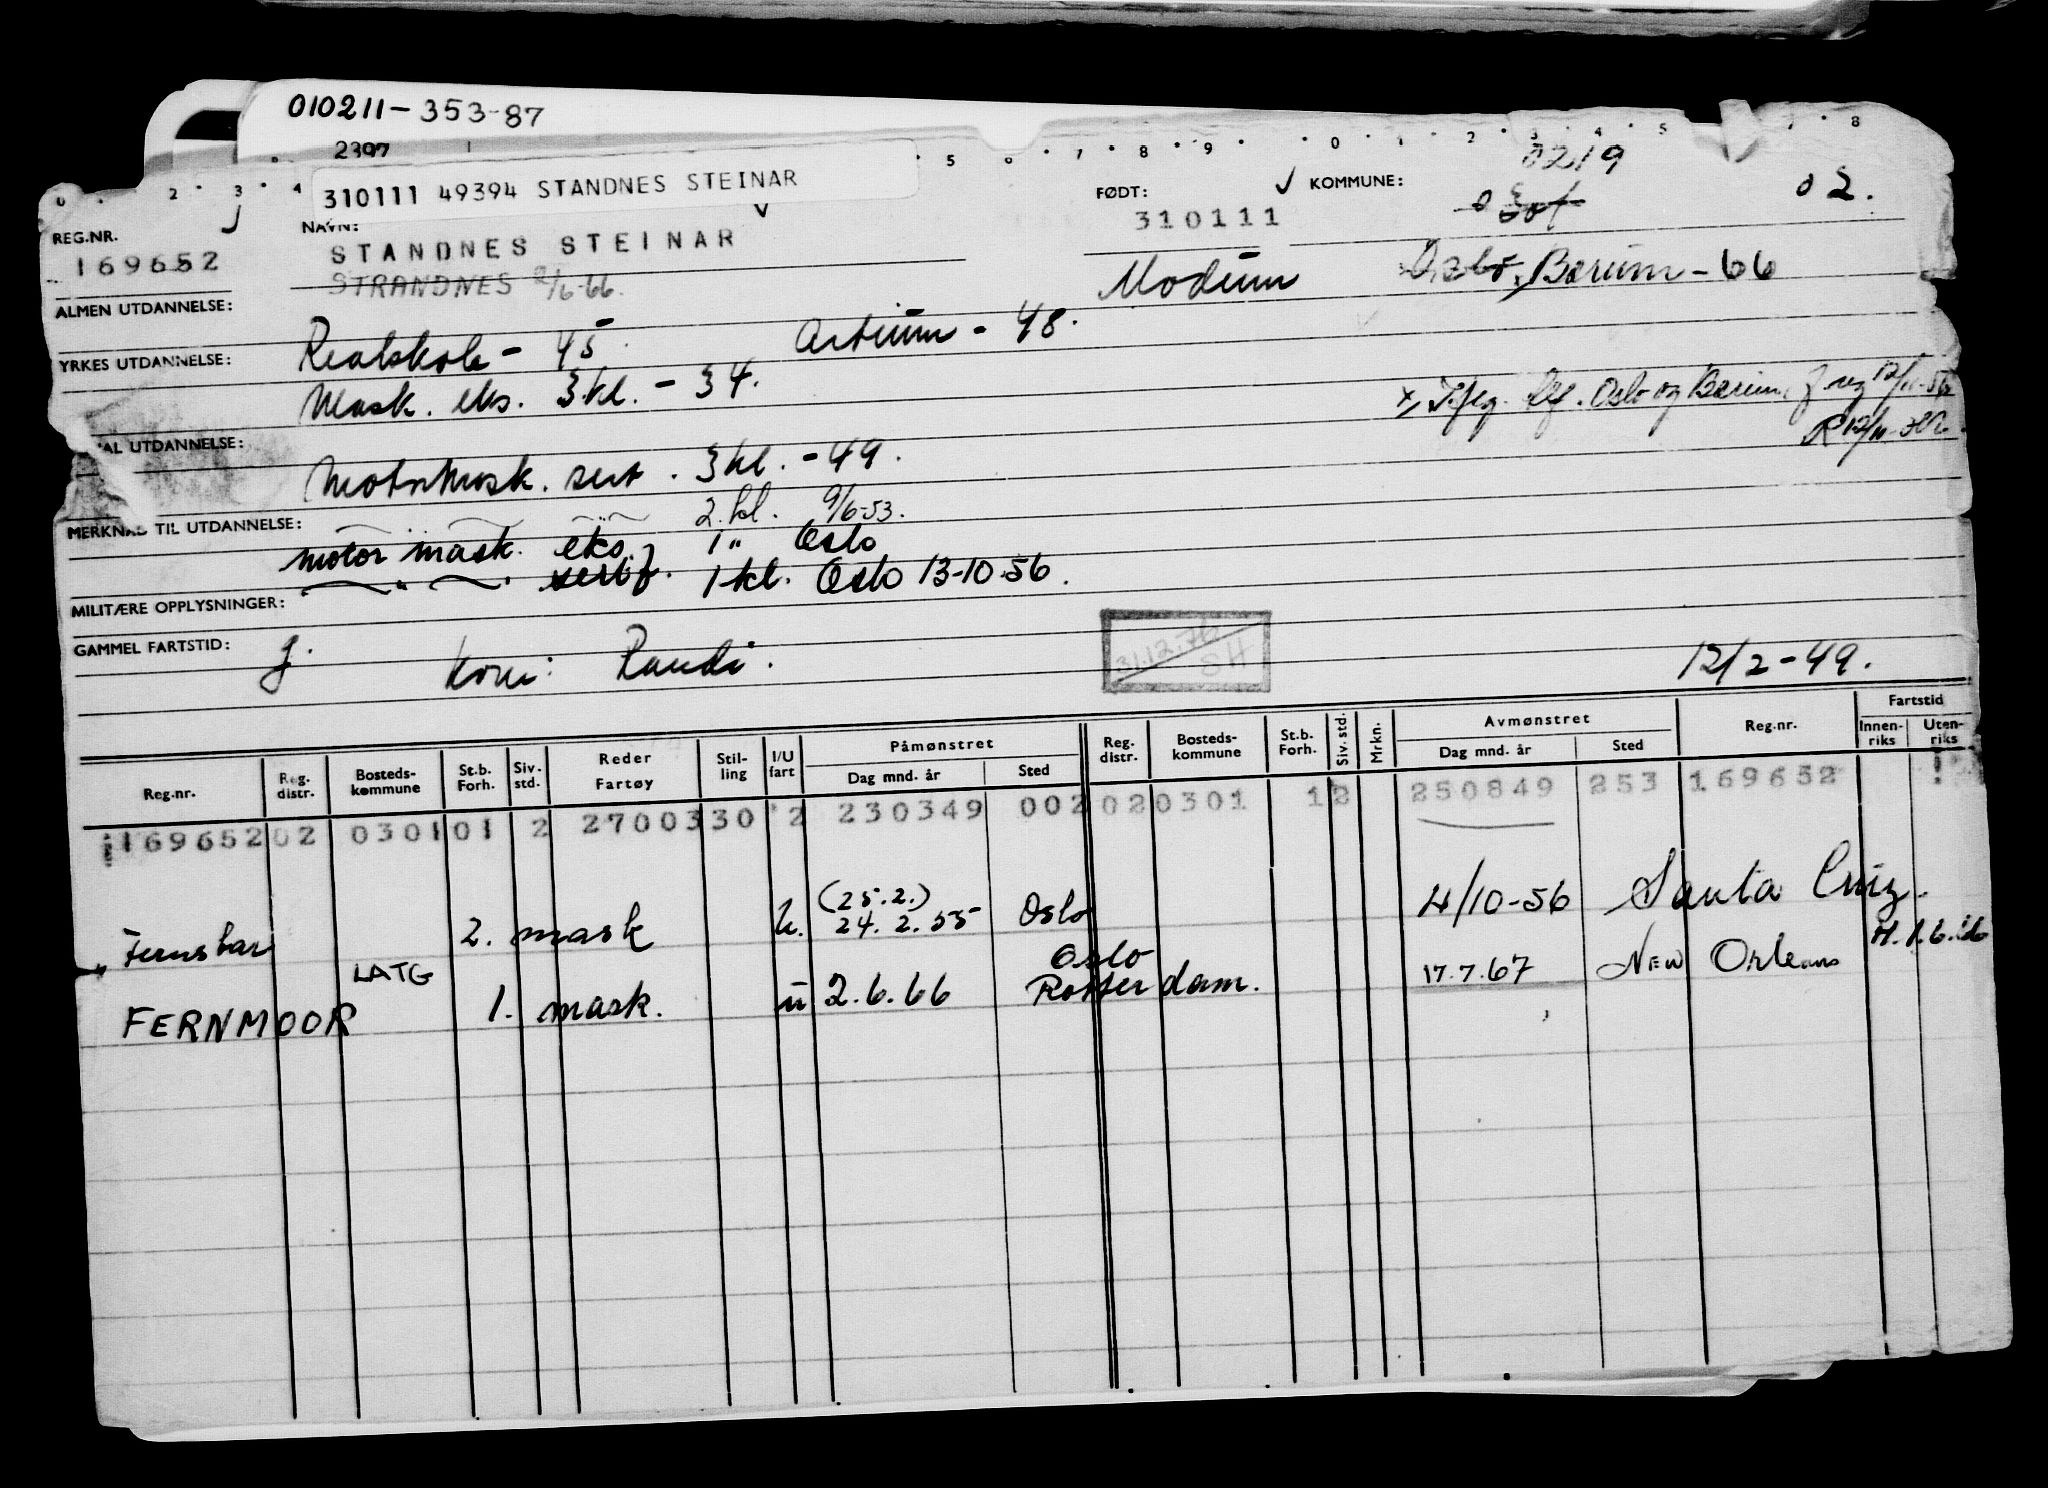 010211-353-87
2397
310111 49394 STANDNES STEINAR
0 2 3 4 5 6 7 8 9 0 1 2 3 4 5 7 8
REG.NR.
169652
NAVN:
STANDNES STEINAR
STRANDNES 2/6-66.
FØDT:
310111
Modum
KOMMUNE:
0219
02.
Oslo, Bærum - 66
ALMEN UTDANNELSE:
Realskole - 45 Artium - 48.
YRKES UTDANNELSE:
Mask. eks. 3 kl. - 34.
Oslo og Bærum
AL UTDANNELSE:
Motormask. sert. 3 kl. - 49.
2. kl. 9/6-53.
MERKNAD TIL UTDANNELSE:
motor mask. eks. 1 " Oslo
" sertf. 1 kl. Oslo 13-10-56.
MILITÆRE OPPLYSNINGER:
GAMMEL FARTSTID:
J. Kone: Randi.
31.12.76
SH
12/2-49.
Reg.nr. Reg. distr. Bosteds-kommune St.b. Forh. Siv. std. Reder Fartøy Stil-ling I/U fart Påmønstret Dag mnd. år Sted Reg. distr. Bosteds-kommune St.b. Forh. Siv. std. Mrkn. Avmønstret Dag mnd. år Sted Reg.nr. Fartstid Innen-riks Uten-riks
169652 02 0301 01 2 2700330 2 230349 002 02 0301 12 250849 253 169652
Fernsbar 2. mask u. (25.2.) 24.2.55 Oslo 4/10-56 Santa Cruz.
FERNMOOR LATG 1. mask. u 2.6.66 Oslo Rotterdam. 17.7.67 New Orleans